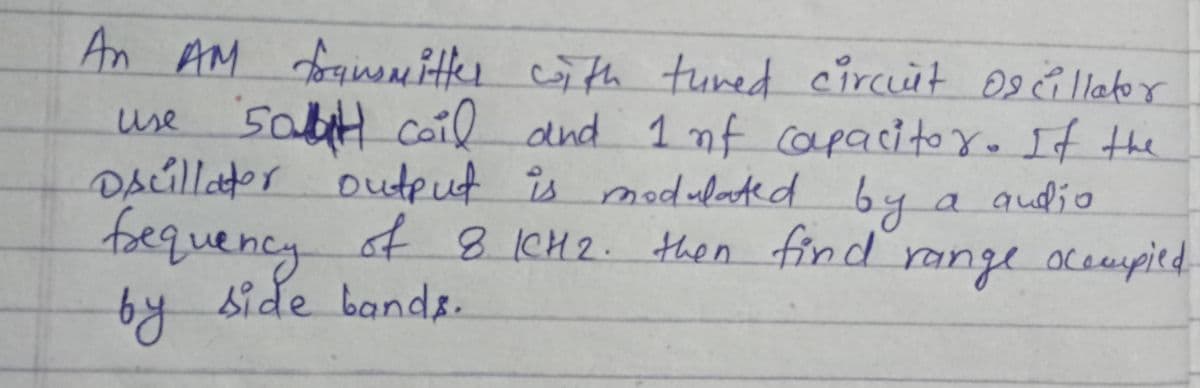 An AM transmitter with tuned circuit oscillator
use coil and 1 nf capacitor. If the
oscillator output is modulated by a audio
frequency of 8 KHz. then find range occupied
by side bands.